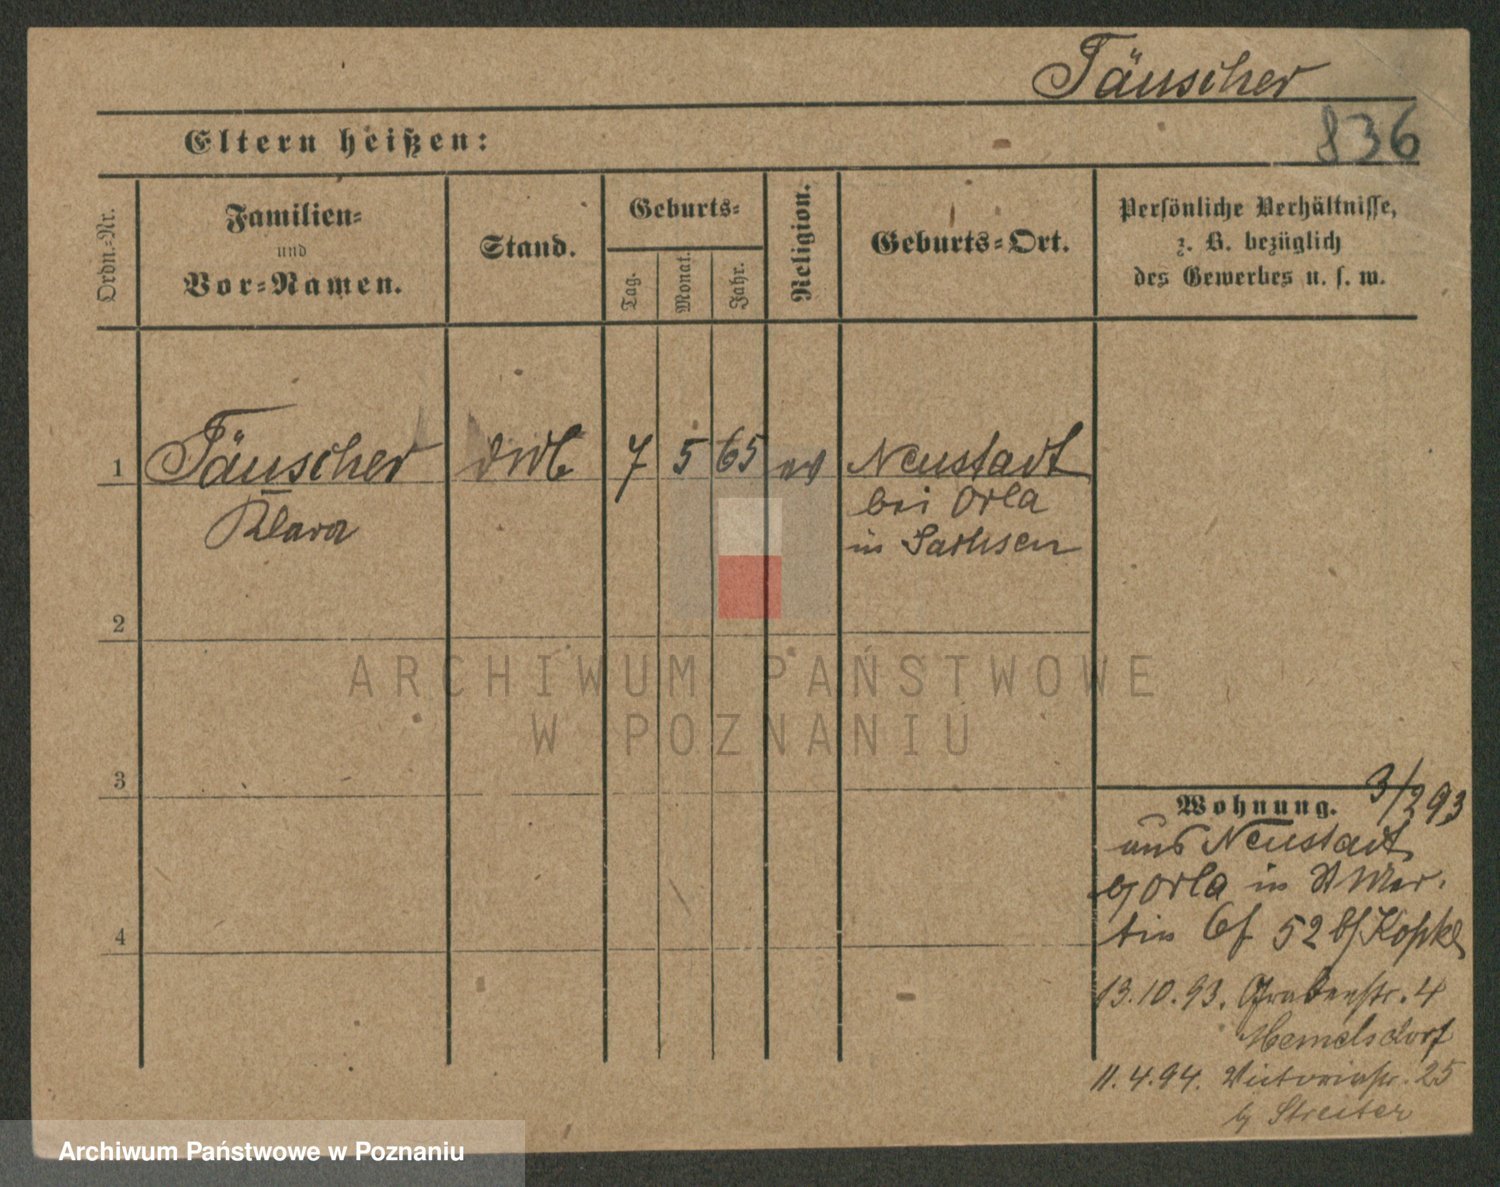 Täuscher
836
Eltern heißen:
Ordn.=Nr.
Familien=
und
Vor=Namen.
Stand.
Geburts=
Tag.
Monat.
Jahr.
Religion.
Geburts=Ort.
Persönliche Verhältnisse,
z. B. bezüglich
des Gewerbes u. s. w.
1
Täuscher
7
5
65
Neustadt
Klara
bei Orla
in Sachsen
2
3
4
Wohnung.
3/2 93
aus Neustadt
Orla in
52 Kopke
13.10.93. Grabenstr. 4
Hemelsdorf
11.4.94. Victoriastr. 25
Streiter
ARCHIWUM PAŃSTWOWE
W POZNANIU
Archiwum Państwowe w Poznaniu